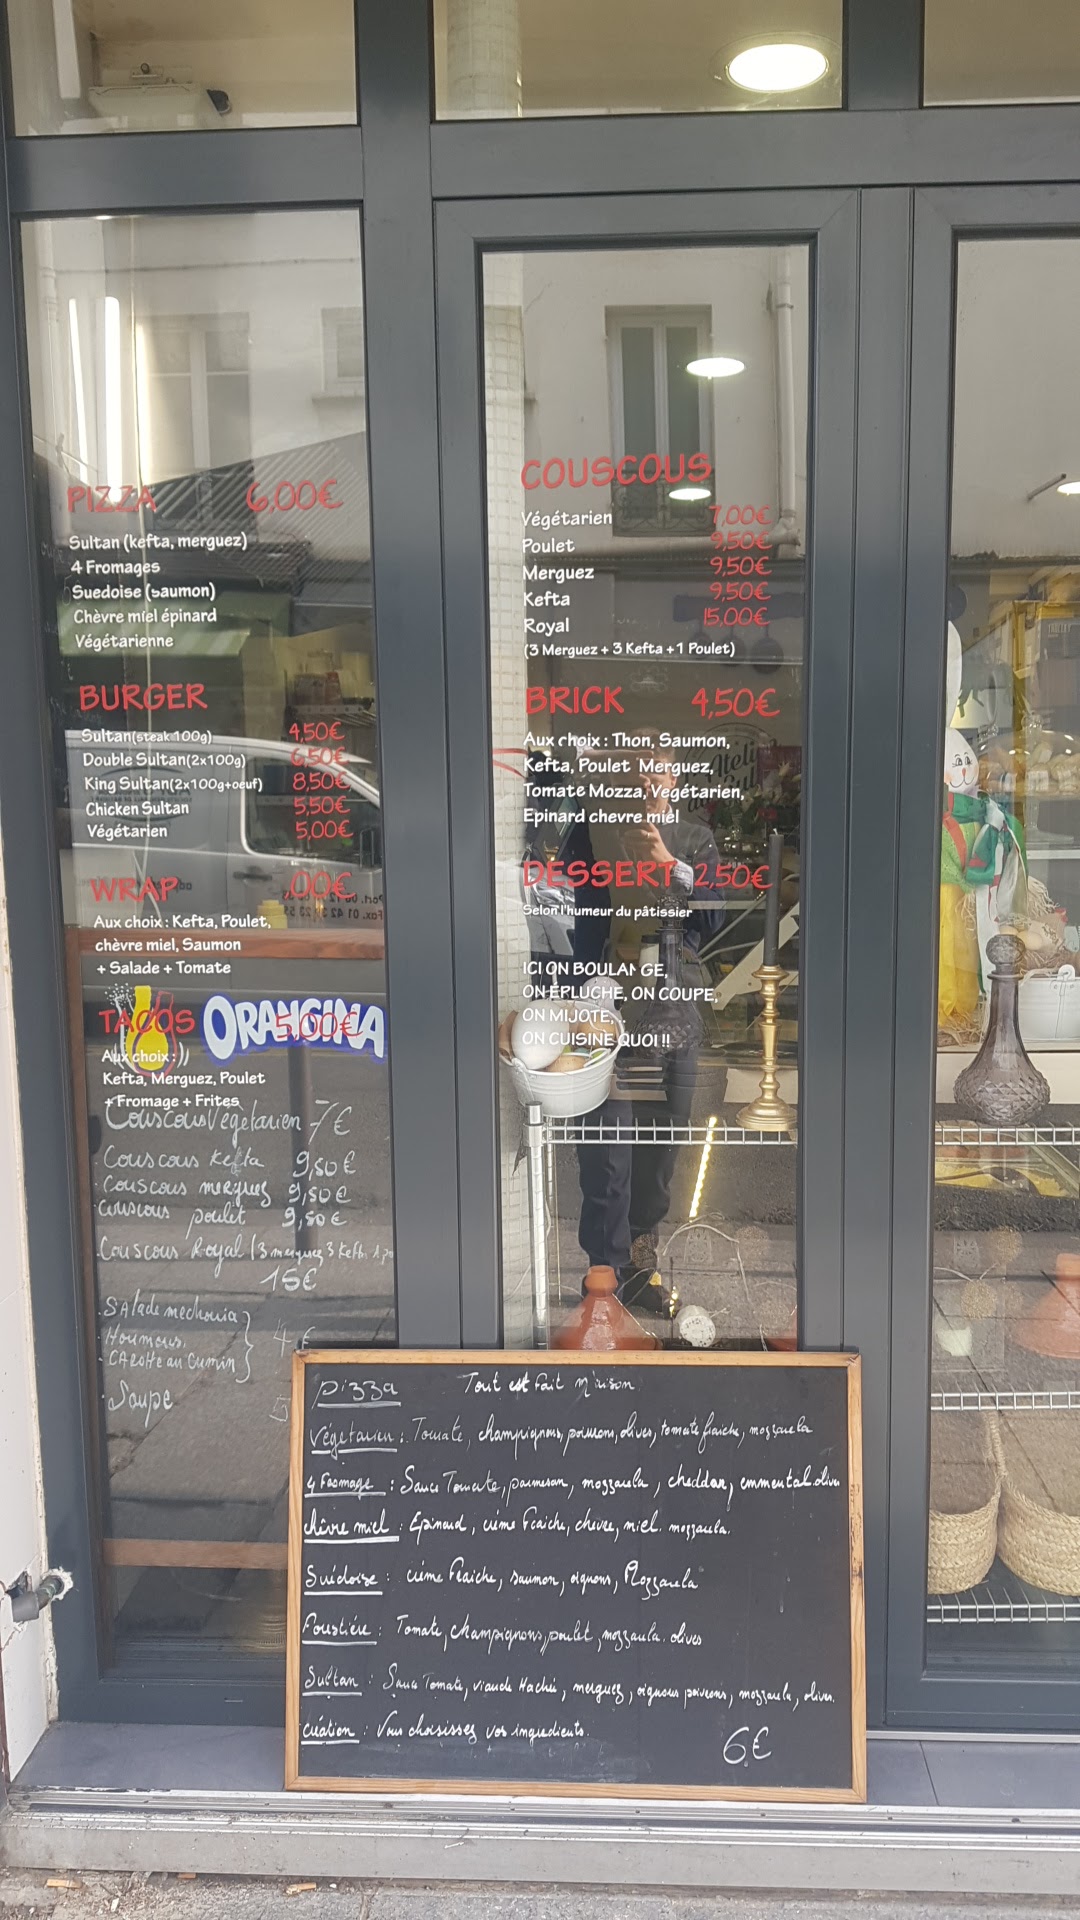 PIZZA 6,00€
Sultan (kefta, merguez)
4 Fromages
Suedoise (saumon)
Chèvre miel épinard
Végétarienne
BURGER
Sultan(steak 100g) 4,50€
Double Sultan(2x100g) 6,50€
King Sultan(2x100g+oeuf) 8,50€
Chicken Sultan 5,50€
Végétarien 5,00€
WRAP ,00€
Aux choix : Kefta, Poulet,
chèvre miel, Saumon
+ Salade + Tomate
TACOS 5,00€
ORANGINA
Aux choix :
Kefta, Merguez, Poulet
+ Fromage + Frites
Couscous Végètarien 7€
Couscous Kefta 9,50€
Couscous merguez 9,50€
couscous poulet 9,50€
Couscous Royal (3 merguez 3 Keft
15€
SAlade mechouia
Houmous
CArotte au Cumin
4€
Soupe 5
COUSCOUS
Végétarien 7,00€
Poulet 9,50€
Merguez 9,50€
Kefta 9,50€
Royal 15,00€
(3 Merguez + 3 Kefta + 1 Poulet)
BRICK 4,50€
Aux choix : Thon, Saumon,
Kefta, Poulet Merguez,
Tomate Mozza, Vegétarien,
Epinard chevre miel
DESSERT 2,50€
Selon l'humeur du pâtissier
ICI ON BOULANGE,
ON EPLUCHE, ON COUPE,
ON MIJOTE,
ON CUISINE QUOI !!
pizza Tout est fait Maison
Végétarien : Tomate, champignons, poivrons, olives, tomate fraiche, mozzarela
4 Fromage : Sauce Tomate, parmesan, mozzarela, cheddar, emmental. olives
chèvre miel : Epinard, crème fraiche, chevre, miel. mozzarela.
Suédoise : crème fraiche, saumon, oignons, Mozzarela
Foustière : Tomate, champignons, poulet, mozzarela. olives
Sultan : Sauce Tomate, viande Haché, merguez, oignons poivrons, mozzarela, olives.
création : Vous choisissez vos ingredients.
6€